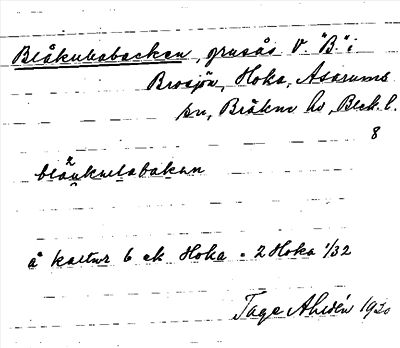 Blåkullabacken, grusås V. "B." i
Brosjön, Hoka, Asarums
sn, Bräkne hs, Blek. l.
8
å kartur 6 ek Hoka . 2 Hoka 1/32
Tage Ahldén 1930